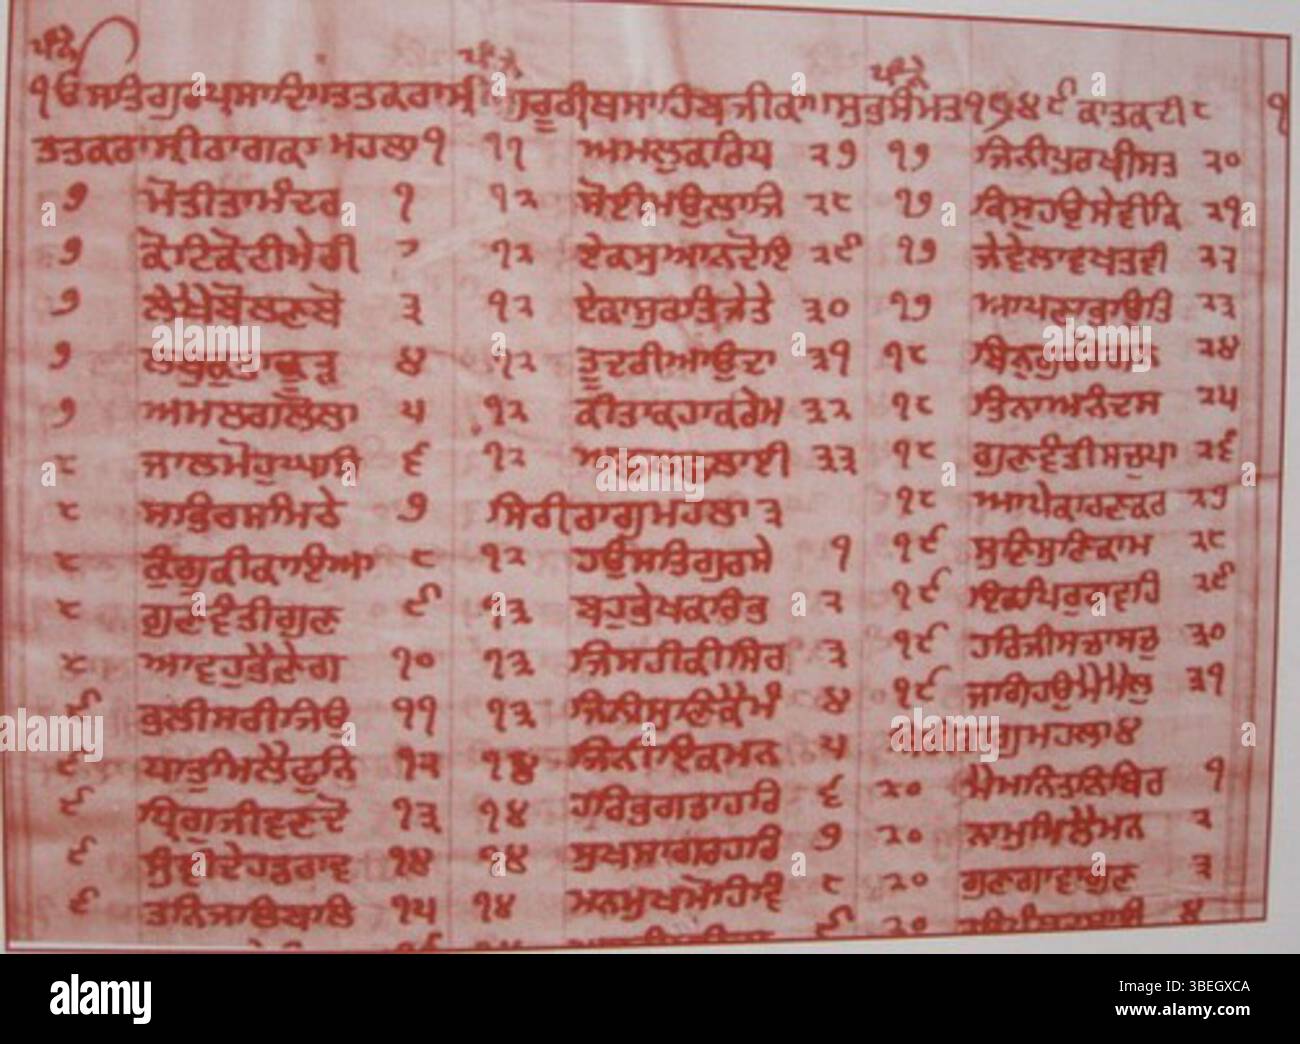 ਪੰਨੇ ਪੰਨੇ ਪੰਨੇ
੧ਓ ਸਤਿਗੁਰਪ੍ਰਸਾਦਿ ਤਤਕਰਾ ਸ੍ਰੀ ਗੁਰੂ ਗ੍ਰੰਥ ਸਾਹਿਬ ਜੀ ਕਾ ਸੰਮਤ ੧੭੪੯ ਕਾਤਕ ਵਦੀ ੮ ੧
ਤਤਕਰਾ ਸ੍ਰੀ ਰਾਗ ਕਾ ਮਹਲਾ ੧ ੧੧ ਅਮਲੁ ਕਰਿ ਧ ੨੭ ੧੭ ਜਿਨੀ ਪੁਰਖੀ ਸਤ ੨੦
੭ ਮੋਤੀ ਤਾ ਮੰਦਰ ੧ ੧੨ ਸੋਈ ਮਉਲਾ ਜਿ ੨੮ ੧੭ ਕਿਸੁ ਹਉ ਸੇਵੀ ਕਿ ੨੧
੭ ਕੋਟਿ ਕੋਟੀ ਮੇਰੀ ੨ ੧੨ ਏਕੁ ਸੁਆਨੁ ਦੋਇ ੨੯ ੧੭ ਜੇ ਵੇਲਾ ਵਖਤੁ ਵੀ ੨੨
੭ ਲੇਖੈ ਬੋਲਣੁ ਬੋ ੩ ੧੨ ਏਕਾ ਸੁਰਤਿ ਜੇਤੇ ੩੦ ੧੭ ਆਪਣਾ ਭਉ ਤਿ ੨੩
੭ ਲਬੁ ਕੁਤਾ ਕੂੜੁ ੪ ੧੨ ਤੂ ਦਰੀਆਉ ਦਾ ੩੧ ੧੮ ਬਿਨੁ ਗੁਰ ਰੋਗੁ ਨ ੨੪
੭ ਅਮਲੁ ਗਲੋਲਾ ੫ ੧੨ ਕੀਤਾ ਕਹਾ ਕਰੇ ਮ ੩੨ ੧੮ ਤਿਨਾ ਅਨੰਦੁ ਸ ੨੫
੮ ਜਾਲਿ ਮੋਹੁ ਘਸਿ ੬ ੧੨ ੩੩ ੧੮ ਗੁਣਵੰਤੀ ਸਚੁ ਪਾ ੨੬
੮ ਸਭਿ ਰਸ ਮਿਠੇ ੭ ਸਿਰੀਰਾਗੁ ਮਹਲਾ ੩ ੧੮ ਆਪੇ ਕਾਰਣੁ ਕਰ ੨੭
੮ ਕੁੰਗੂ ਕੀ ਕਾਂਇਆ ੮ ੧੨ ਹਉ ਸਤਿਗੁਰੁ ਸੇ ੧ ੧੯ ਸੁਣਿ ਸੁਣਿ ਕਾਮ ੨੮
੮ ਗੁਣਵੰਤੀ ਗੁਣ ੯ ੧੩ ਬਹੁ ਭੇਖ ਕਰਿ ਭ ੨ ੧੯ ਇਕਿ ਪਿਰੁ ਰਾਵਹਿ ੨੯
੮ ਆਵਹੁ ਭੈਣੇ ਗ ੧੦ ੧੩ ਜਿਸ ਹੀ ਕੀ ਸਿਰ ੩ ੧੯ ਹਰਿ ਜੀ ਸਚਾ ਸਚੁ ੩੦
੯ ਭਲੀ ਸਰੀ ਜਿ ਉ ੧੧ ੧੩ ਜਿਨੀ ਸੁਣਿ ਕੈ ਮੰ ੪ ੧੯ ਜਗਿ ਹਉਮੈ ਮੈਲੁ ੩੧
੯ ਧਾਤੁ ਮਿਲੈ ਫੁਨਿ ੧੨ ੧੪ ਜਿਨੀ ਇਕ ਮਨਿ ੫ ਸਿਰੀਰਾਗੁ ਮਹਲਾ ੪
੯ ਧ੍ਰਿਗੁ ਜੀਵਣੁ ਦੋ ੧੩ ੧੪ ਹਰਿ ਭਗਤਾ ਹਰਿ ੬ ੨੦ ਮੈ ਮਨਿ ਤਨਿ ਬਿਰ ੧
੯ ਸੁੰਞੀ ਦੇਹ ਡਰਾਵ ੧੪ ੧੪ ਸੁਖ ਸਾਗਰੁ ਹਰਿ ੭ ੨੦ ਨਾਮੁ ਮਿਲੈ ਮਨੁ ੨
੯ ਤਨੁ ਜਲਿ ਬਲਿ ੧੫ ੧੪ ਮਨਮੁਖੁ ਮੋਹਿ ਵਿ ੮ ੨੦ ਗੁਣ ਗਾਵਾ ਗੁਣ ੩
੯ ੨੦ ੪
alamy
Image ID: 3BEGXCA
www.alamy.com